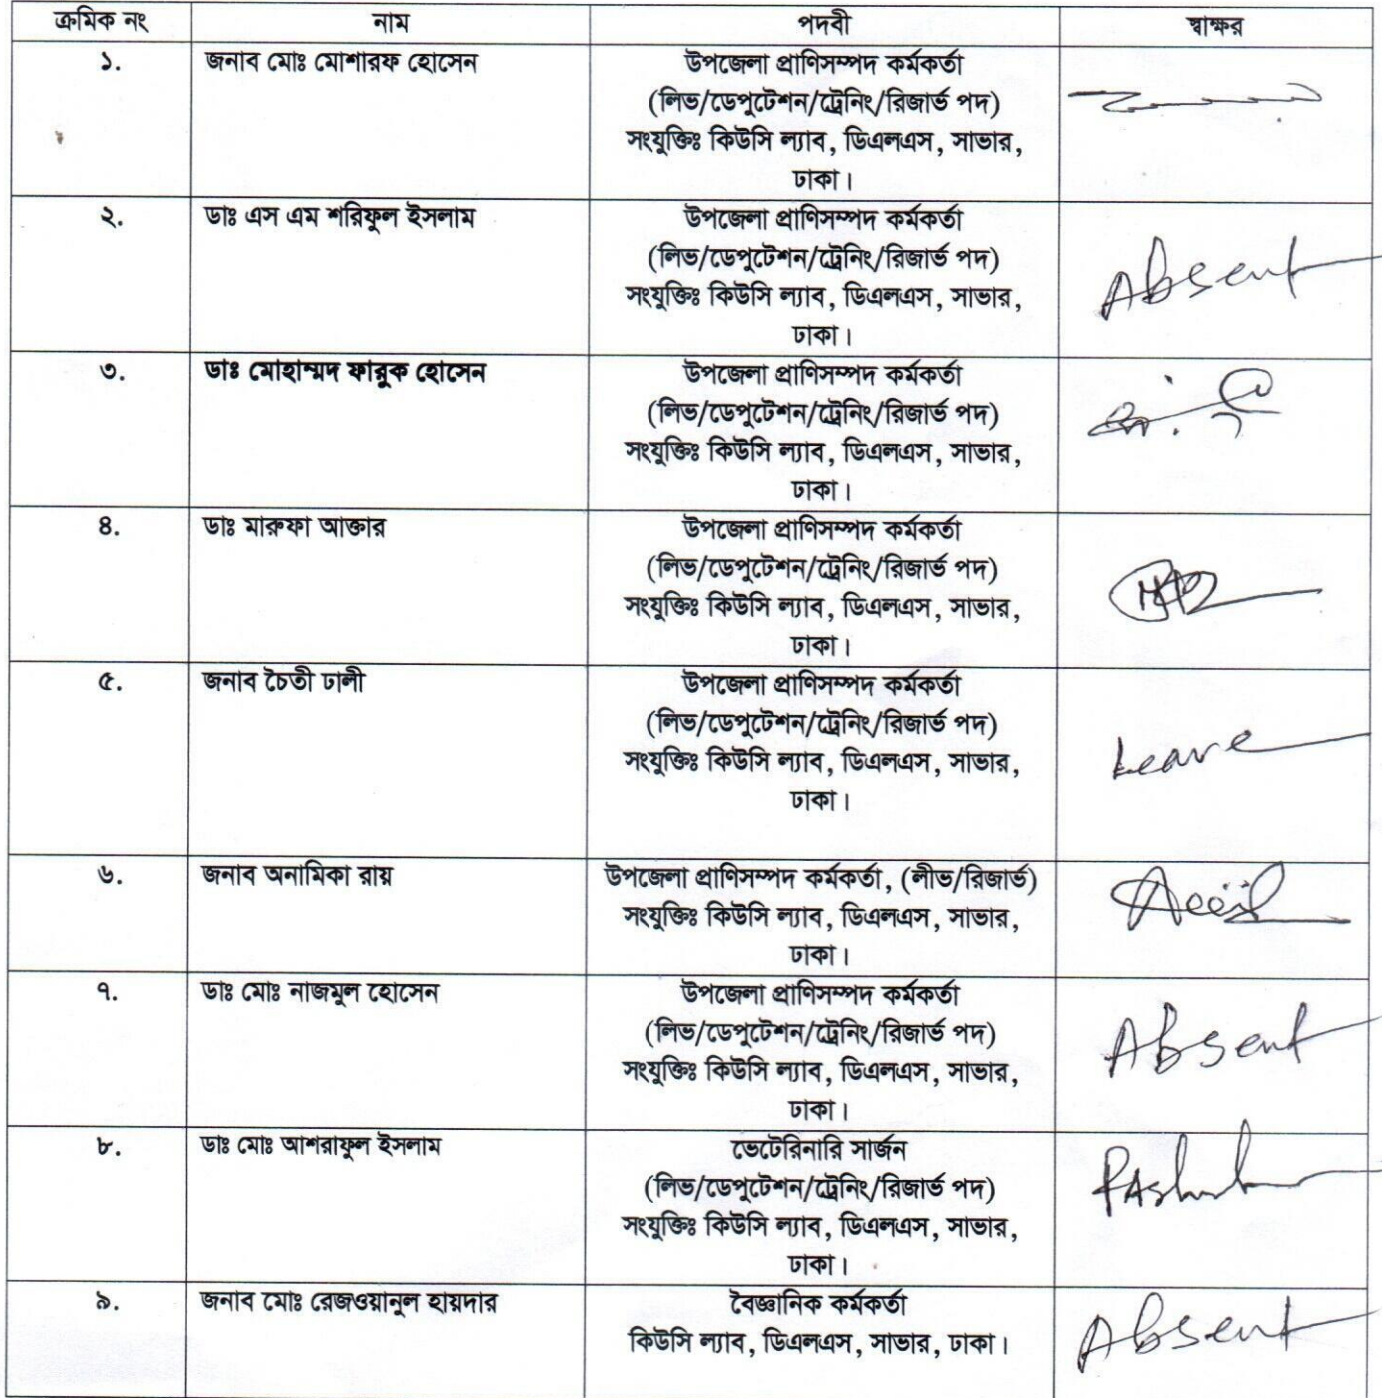 ক্রমিক নং নাম পদবী স্বাক্ষর
১. জনাব মোঃ মোশারফ হোসেন উপজেলা প্রাণিসম্পদ কর্মকর্তা
(লিভ/ডেপুটেশন/ট্রেনিং/রিজার্ভ পদ)
সংযুক্তিঃ কিউসি ল্যাব, ডিএলএস, সাভার,
ঢাকা।
২. ডাঃ এস এম শরিফুল ইসলাম উপজেলা প্রাণিসম্পদ কর্মকর্তা
(লিভ/ডেপুটেশন/ট্রেনিং/রিজার্ভ পদ)
সংযুক্তিঃ কিউসি ল্যাব, ডিএলএস, সাভার,
ঢাকা।
Absent
৩. ডাঃ মোহাম্মদ ফারুক হোসেন উপজেলা প্রাণিসম্পদ কর্মকর্তা
(লিভ/ডেপুটেশন/ট্রেনিং/রিজার্ভ পদ)
সংযুক্তিঃ কিউসি ল্যাব, ডিএলএস, সাভার,
ঢাকা।
৪. ডাঃ মারুফা আক্তার উপজেলা প্রাণিসম্পদ কর্মকর্তা
(লিভ/ডেপুটেশন/ট্রেনিং/রিজার্ভ পদ)
সংযুক্তিঃ কিউসি ল্যাব, ডিএলএস, সাভার,
ঢাকা।
৫. জনাব চৈতী ঢালী উপজেলা প্রাণিসম্পদ কর্মকর্তা
(লিভ/ডেপুটেশন/ট্রেনিং/রিজার্ভ পদ)
সংযুক্তিঃ কিউসি ল্যাব, ডিএলএস, সাভার,
ঢাকা।
Leave
৬. জনাব অনামিকা রায় উপজেলা প্রাণিসম্পদ কর্মকর্তা, (লীভ/রিজার্ভ)
সংযুক্তিঃ কিউসি ল্যাব, ডিএলএস, সাভার,
ঢাকা।
৭. ডাঃ মোঃ নাজমুল হোসেন উপজেলা প্রাণিসম্পদ কর্মকর্তা
(লিভ/ডেপুটেশন/ট্রেনিং/রিজার্ভ পদ)
সংযুক্তিঃ কিউসি ল্যাব, ডিএলএস, সাভার,
ঢাকা।
Absent
৮. ডাঃ মোঃ আশরাফুল ইসলাম ভেটেরিনারি সার্জন
(লিভ/ডেপুটেশন/ট্রেনিং/রিজার্ভ পদ)
সংযুক্তিঃ কিউসি ল্যাব, ডিএলএস, সাভার,
ঢাকা।
৯. জনাব মোঃ রেজওয়ানুল হায়দার বৈজ্ঞানিক কর্মকর্তা
কিউসি ল্যাব, ডিএলএস, সাভার, ঢাকা।
Absent